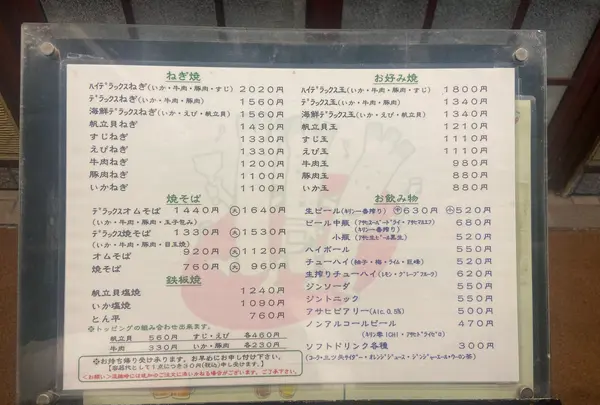 ねぎ焼
ハイデラックスねぎ(いか・牛肉・豚肉・すじ) 2020円
デラックスねぎ(いか・牛肉・豚肉) 1560円
海鮮デラックスねぎ(いか・えび・帆立貝) 1560円
帆立貝ねぎ 1430円
すじねぎ 1330円
えびねぎ 1330円
牛肉ねぎ 1200円
豚肉ねぎ 1100円
いかねぎ 1100円
焼そば
デラックスオムそば 1440円 大1640円
(いか・牛肉・豚肉・玉子包み)
デラックス焼そば 1330円 大1530円
(いか・牛肉・豚肉・目玉焼)
オムそば 920円 大1120円
焼そば 760円 大960円
鉄板焼
帆立貝塩焼 1240円
いか塩焼 1090円
とん平 760円
※トッピングの組み合わせ出来ます。
帆立貝 560円 すじ・えび 各460円
牛肉 330円 豚肉・いか 各230円
※お持ち帰り受け承ります。お早めにお申し付け下さい。
【容器代として1点につき30円(税込)申し受けます。】
お好み焼
ハイデラックス玉(いか・牛肉・豚肉・すじ) 1800円
デラックス玉(いか・牛肉・豚肉) 1340円
海鮮デラックス玉(いか・えび・帆立貝) 1340円
帆立貝玉 1210円
すじ玉 1110円
えび玉 1110円
牛肉玉 980円
豚肉玉 880円
いか玉 880円
お飲み物
生ビール(キリン一番搾り) 中630円 小520円
ビール中瓶 (アサヒスーパードライ・アサヒマルエフ) 680円
(キリン一番搾り)
小瓶 (アサヒ生ビール黒生) 520円
ハイボール 550円
チューハイ(柚子・梅・ライム・巨峰) 520円
生搾りチューハイ(レモン・グレープフルーツ) 620円
ジンソーダ 550円
ジントニック 550円
アサヒビアリー(Alc.0.5%) 500円
ノンアルコールビール 470円
(キリン零ICHI・アサヒドライゼロ)
ソフトドリンク各種 300円
(コーク・三ツ矢サイダー・オレンジジュース・ジンジャーエール・ウーロン茶)